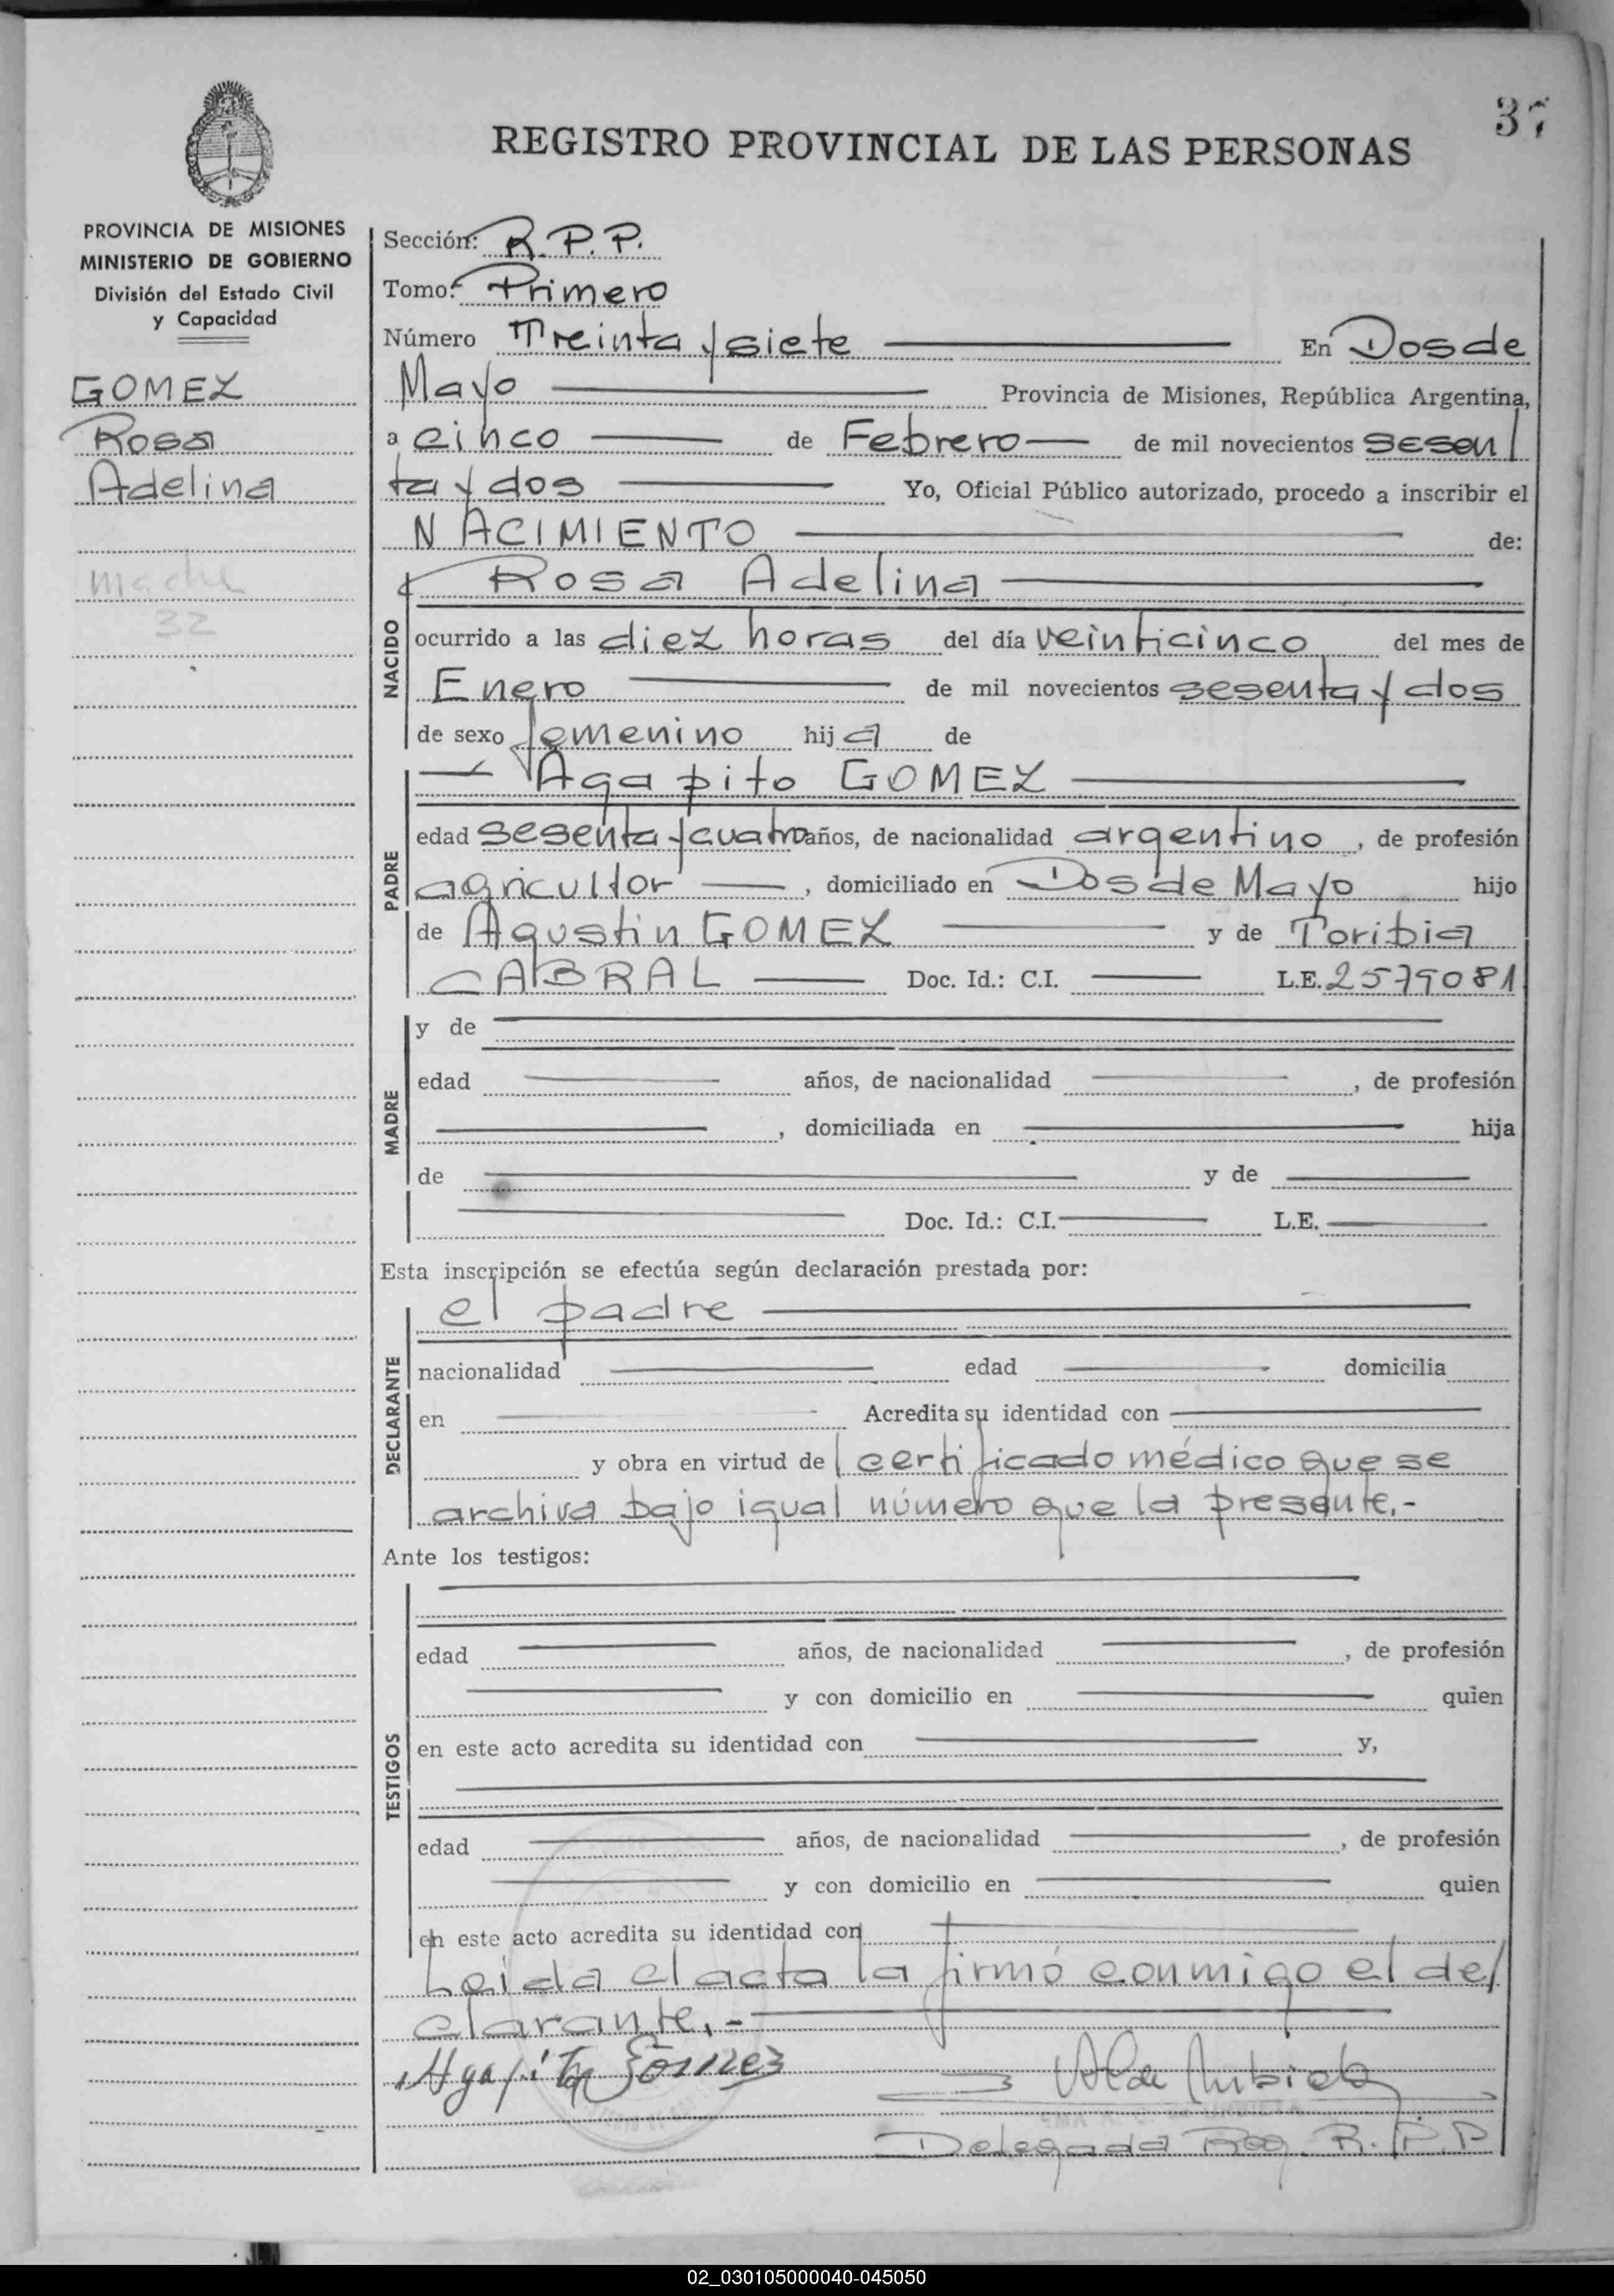 37
REGISTRO PROVINCIAL DE LAS PERSONAS
PROVINCIA DE MISIONES
MINISTERIO DE GOBIERNO
División del Estado Civil
y Capacidad
GOMEZ
Rosa
Adelina
32
Sección: R.P.P.
Tomo: Primero
Número Treinta y siete En Dos de
Mayo Provincia de Misiones, República Argentina,
a cinco de Febrero de mil novecientos sesen
ta y dos Yo, Oficial Público autorizado, procedo a inscribir el
NACIMIENTO de:
Rosa Adelina
NACIDO
ocurrido a las diez horas del día veinticinco del mes de
Enero de mil novecientos sesenta y dos
de sexo femenino hija de
PADRE
Agapito GOMEZ
edad sesenta y cuatro años, de nacionalidad argentino, de profesión
agricultor, domiciliado en Dos de Mayo hijo
de Agustin GOMEZ y de Toribia
CABRAL Doc. Id.: C.I. L.E. 2579081
MADRE
y de
edad años, de nacionalidad , de profesión
, domiciliada en hija
de y de
Doc. Id.: C.I. L.E.
Esta inscripción se efectúa según declaración prestada por:
DECLARANTE
el padre
nacionalidad edad domicilia
en Acredita su identidad con
y obra en virtud de certificado médico que se
archiva bajo igual número que la presente.-
Ante los testigos:
TESTIGOS
edad años, de nacionalidad , de profesión
y con domicilio en quien
en este acto acredita su identidad con y,
edad años, de nacionalidad , de profesión
y con domicilio en quien
en este acto acredita su identidad con
Leida el acta la firmó conmigo el de
clarante.-
Agapito Gómez
Delegada Reg. R.P.P
02_030105000040-045050